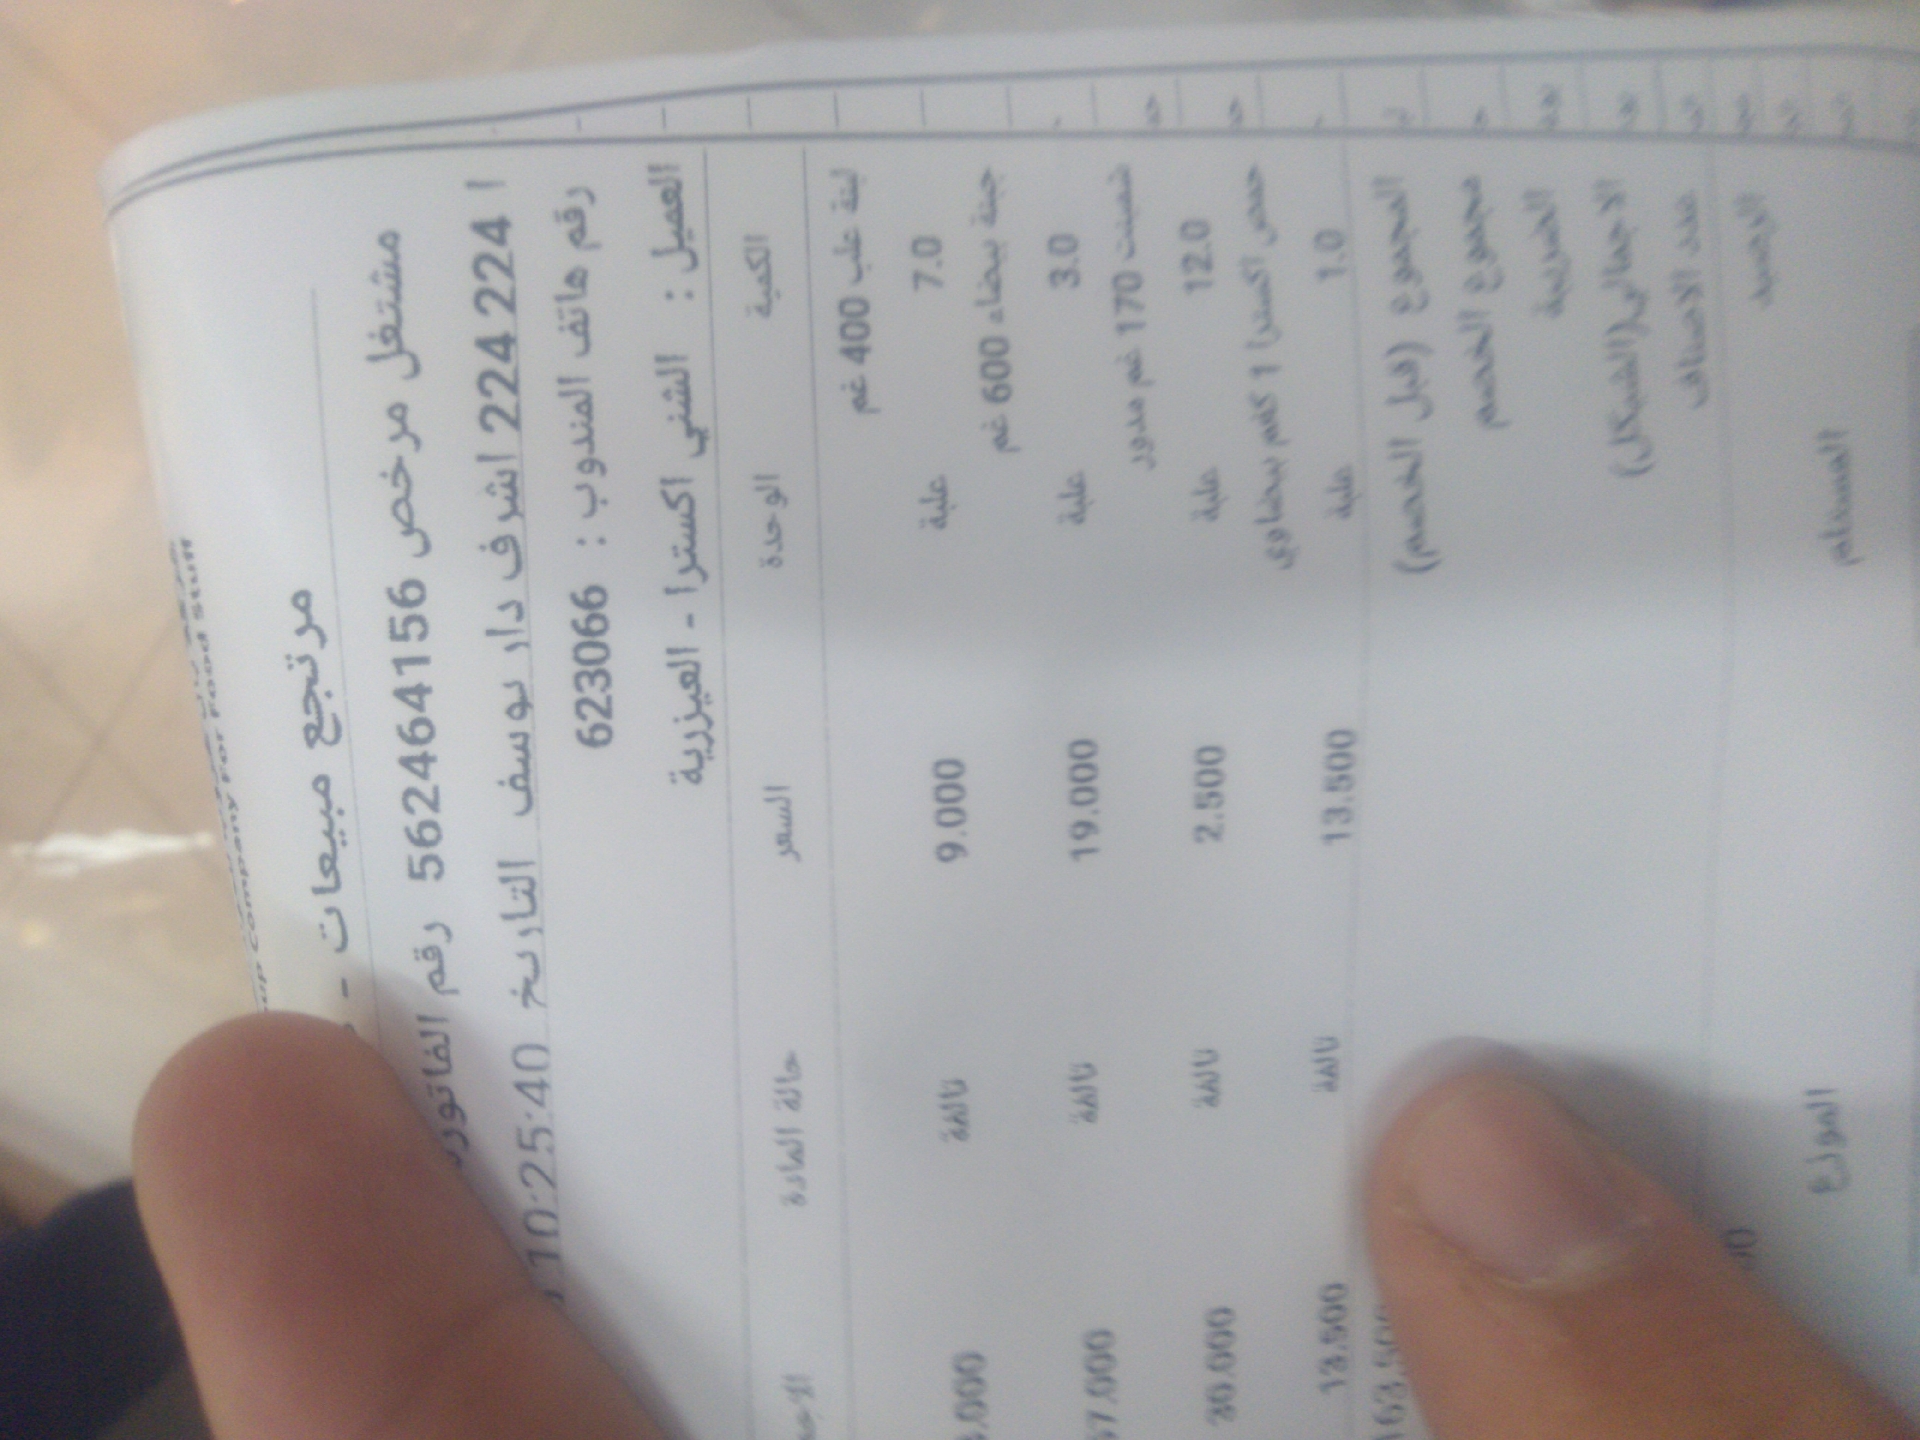 Company For Food Stuff
مرتجع مبيعات -
مشتغل مرخص 562464156 رقم
224 224 1 اشرف دار يوسف التاريخ 10:25:40
رقم هاتف المندوب : 623066
العميل : الشني اكسترا - العيزرية
الكمية الوحدة السعر حالة المادة
لبنة علب 400 غم
7.0 علبة 9.000 تالفة
جبنة بيضاء 600 غم
3.0 علبة 19.000 تالفة 57.000
شمينت 170 غم مدور
12.0 علبة 2.500 تالفة 30.000
حمص اكسترا 1 كغم بيضاوي
1.0 علبة 13.500 تالفة 13.500
المجموع (قبل الخصم)
مجموع الخصم
الضريبة
الاجمالي(الشيكل)
عدد الاصناف
الرصيد
المستلم الموزع